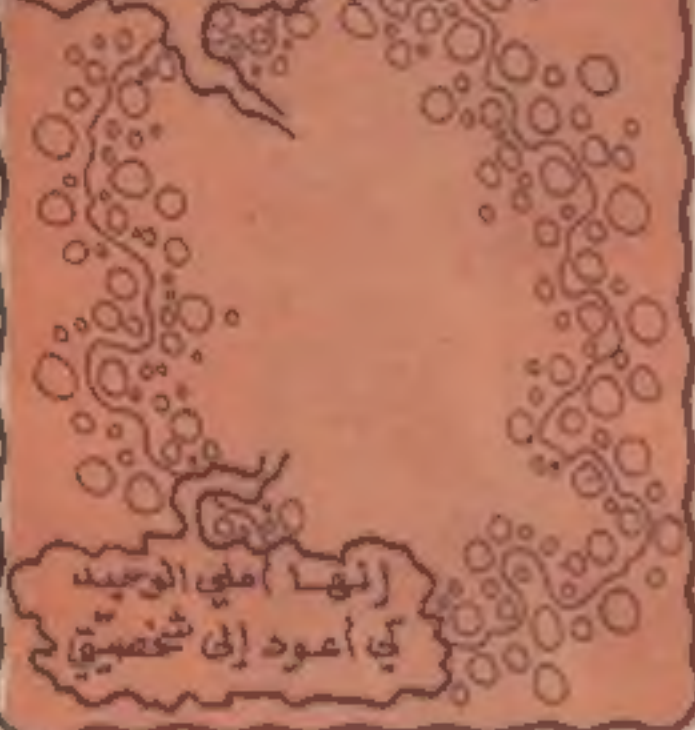 إنها أملي الوحيد
كي أعود إلى شخصيتي